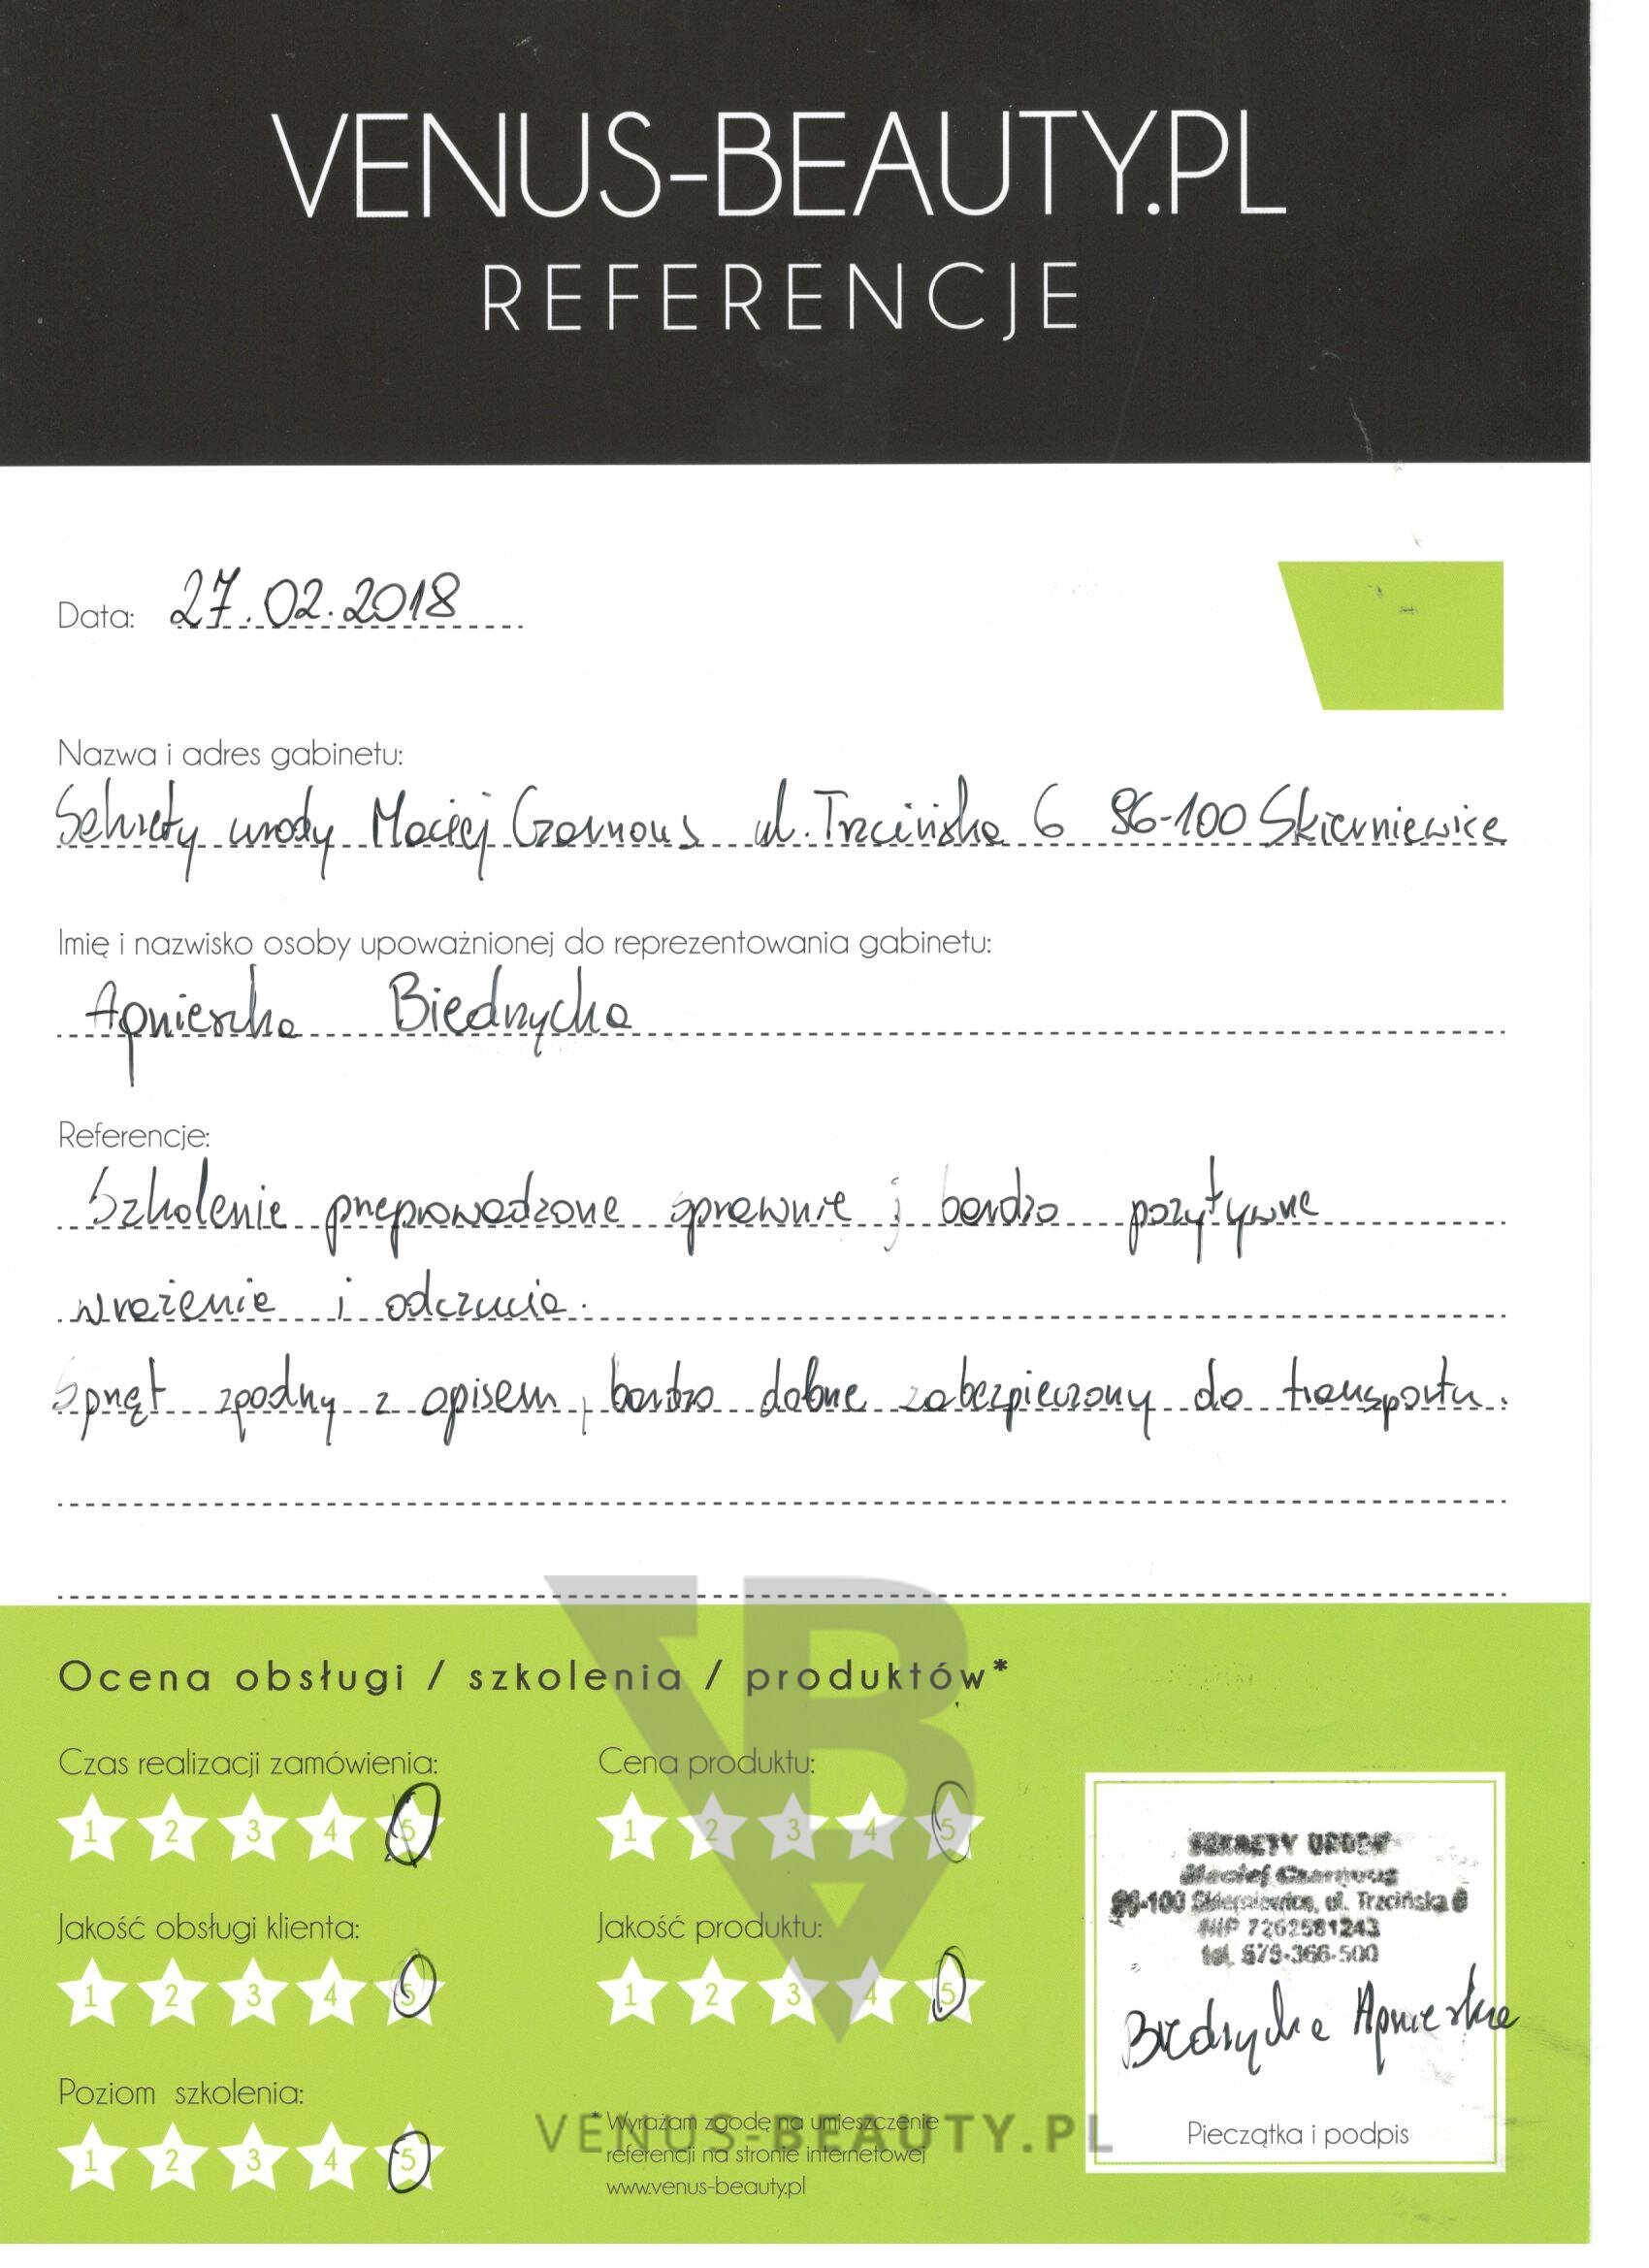 VENUS-BEAUTY.PL
REFERENCJE
Data: 27.02.2018
Nazwa i adres gabinetu:
Sekrety urody Maciej Czarnous ul. Trzcińska 6 96-100 Skierniewice
Imię i nazwisko osoby upoważnionej do reprezentowania gabinetu:
Agnieszka Biedrzycka
Referencje:
Szkolenie przeprowadzone sprawnie ; bardzo pozytywne
wrażenie i odczucia.
Sprzęt zgodny z opisem, bardzo dobrze zabezpieczony do transportu.
Ocena obsługi / szkolenia / produktów*
Czas realizacji zamówienia:
1 2 3 4 5
Cena produktu:
1 2 3 4 5
Jakość obsługi klienta:
1 2 3 4 5
Jakość produktu:
1 2 3 4 5
Poziom szkolenia:
1 2 3 4 5
* Wyrażam zgodę na umieszczenie
referencji na stronie internetowej
www.venus-beauty.pl
VENUS-BEAUTY.PL
SEKRETY URODY
Maciej Czarnous
96-100 Skierniewice, ul. Trzcińska 6
NIP 7262581243
tel. 579-366-500
Biedrzycka Agnieszka
Pieczątka i podpis